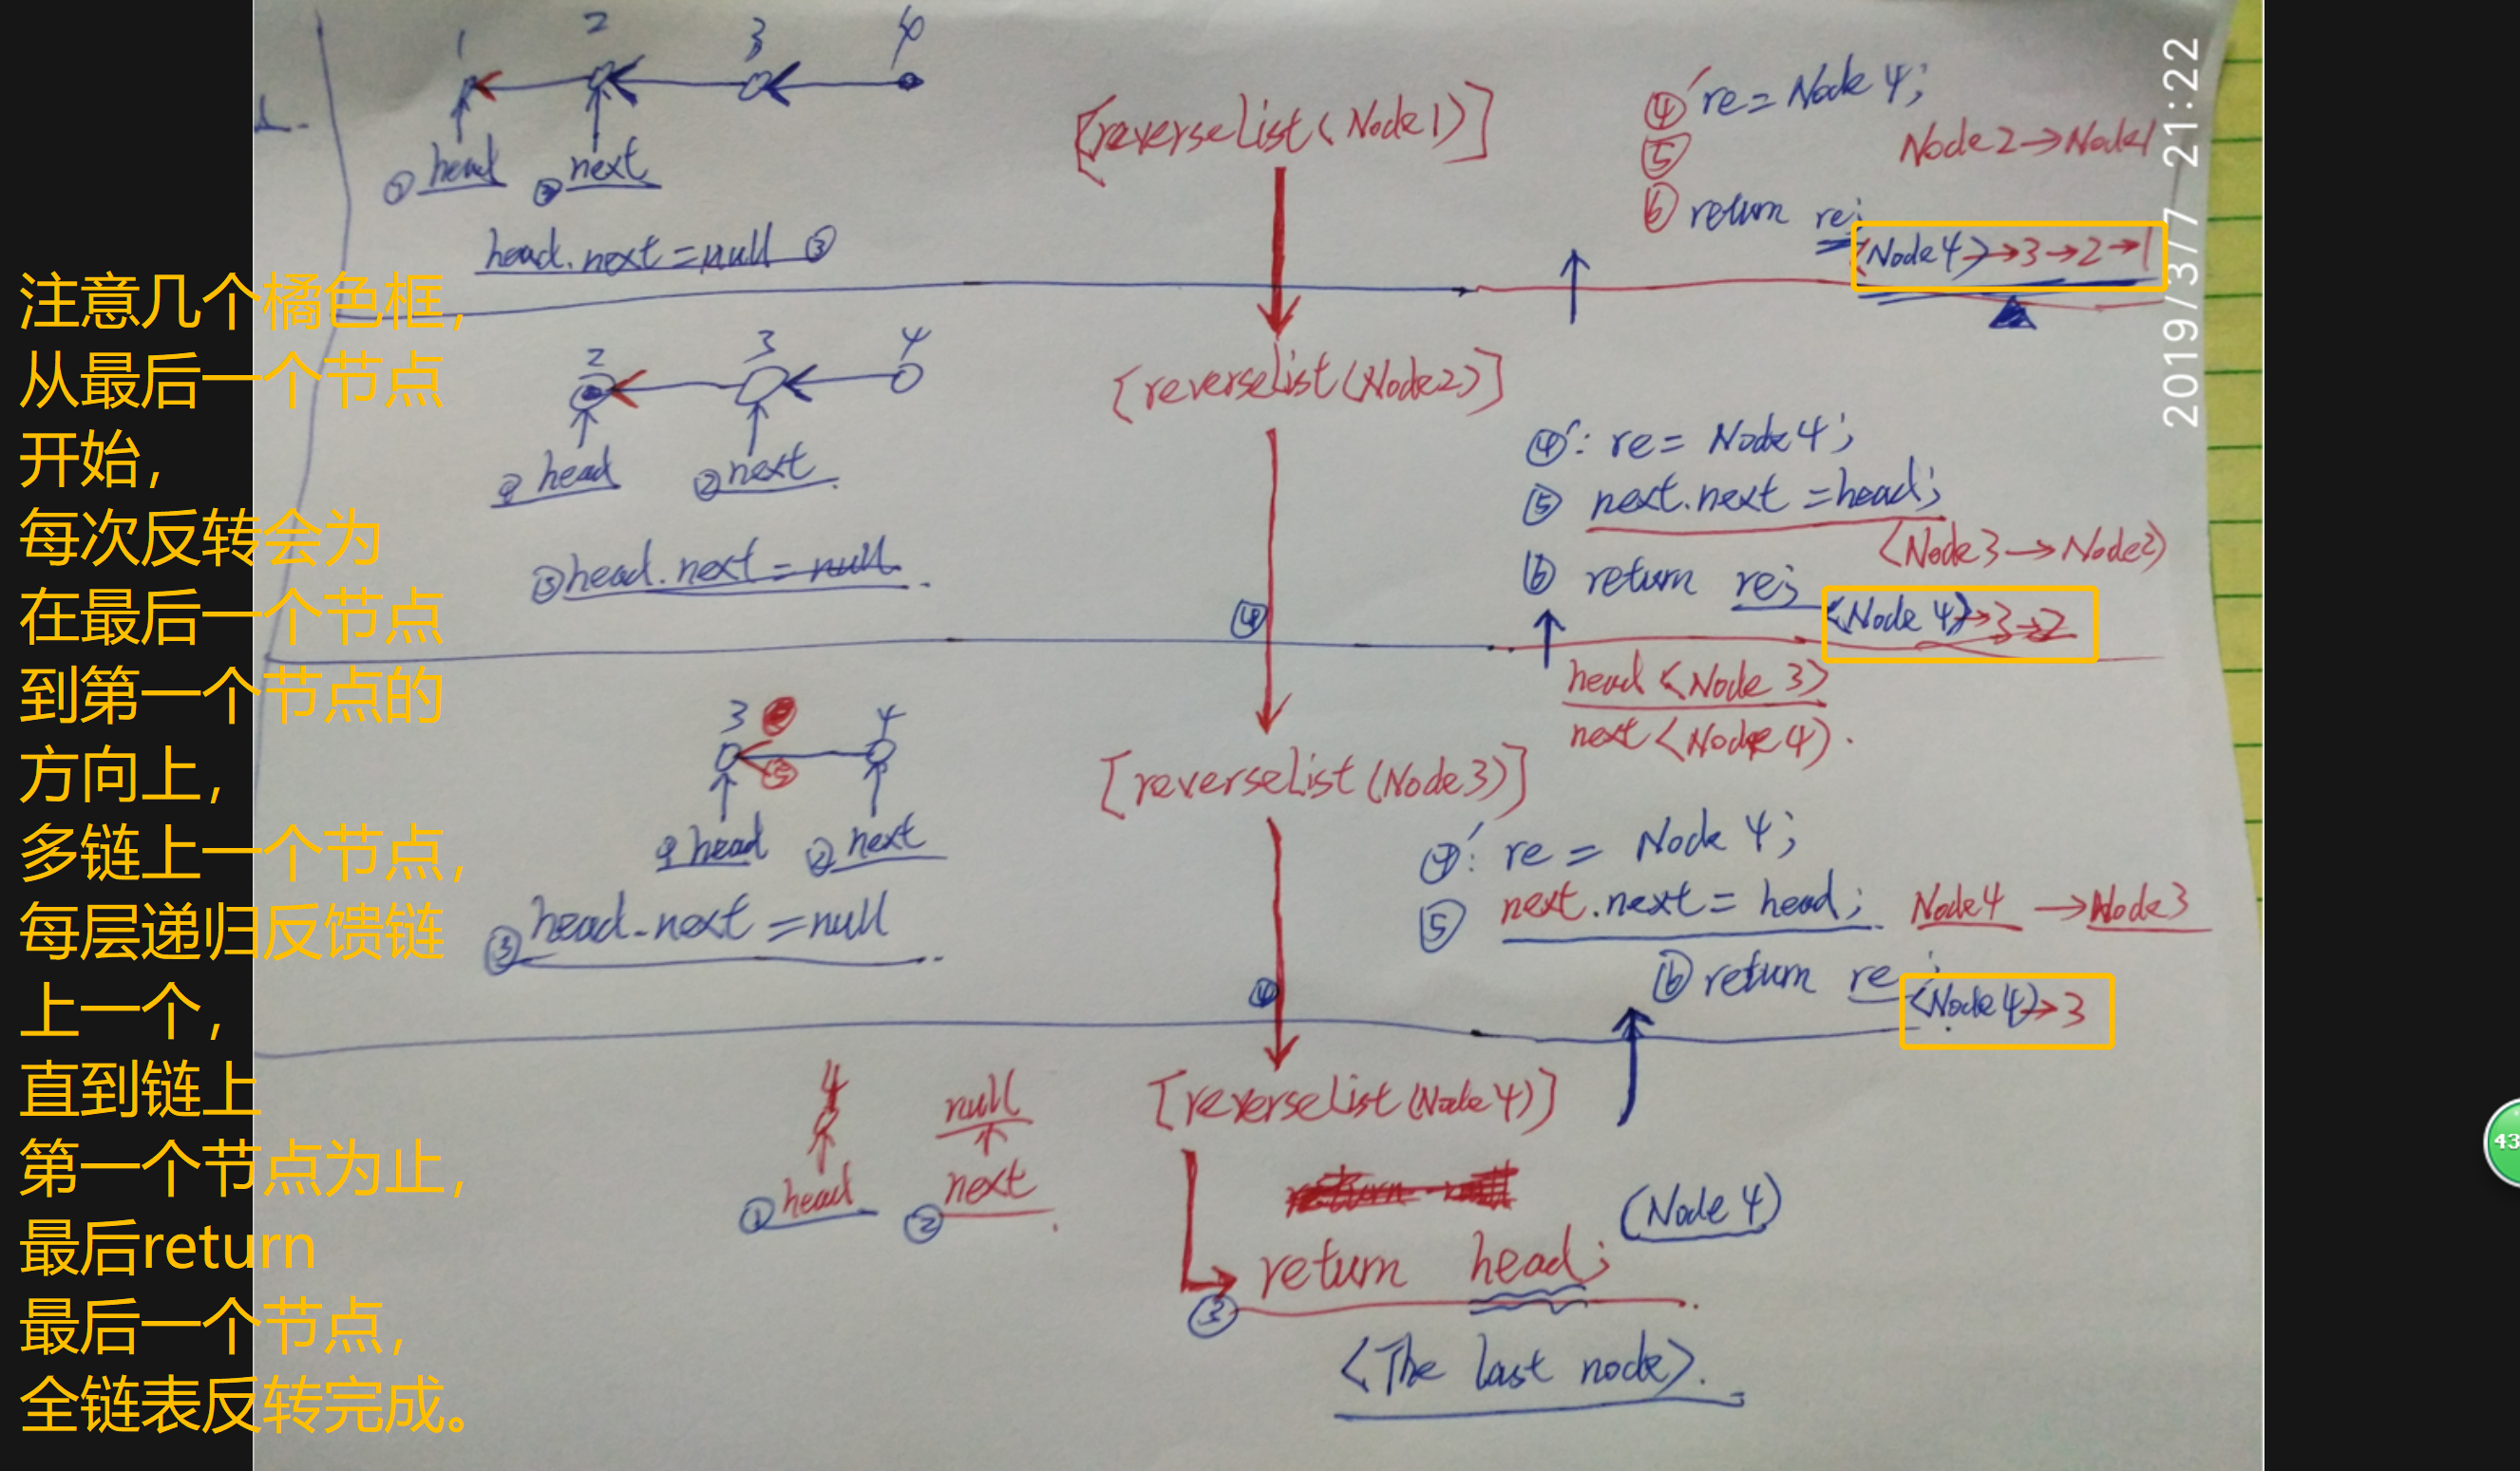 注意几个橘色框,
从最后一个节点
开始,
每次反转会为
在最后一个节点
到第一个节点的
方向上,
多链上一个节点,
每层递归反馈链
上一个,
直到链上
第一个节点为止,
最后return
最后一个节点,
全链表反转完成。
1 2 3 4
① head ② next
head.next = null ③
[reverselist(Node1)]
④' re = Node 4;
⑤ Node2→Node1
⑥ return re;
(Node 4)→3→2→1
2 3 4
① head ② next
③ head.next = null
[reverselist(Node2)]
④': re = Node 4;
⑤ next.next = head;
(Node3→Node2)
⑥ return re;
(Node 4)→3→2
④
head <Node 3>
next <Node 4>.
3 4
⑤
① head ② next
③ head.next = null
[reverselist(Node3)]
④': re = Node 4;
⑤ next.next = head; Node4→Node3
⑥ return re;
(Node 4)→3
④
4 null
① head ② next
[reverselist(Node 4)]
(Node 4)
③ return head;
<The last node>.
2019/3/7 21:22
43